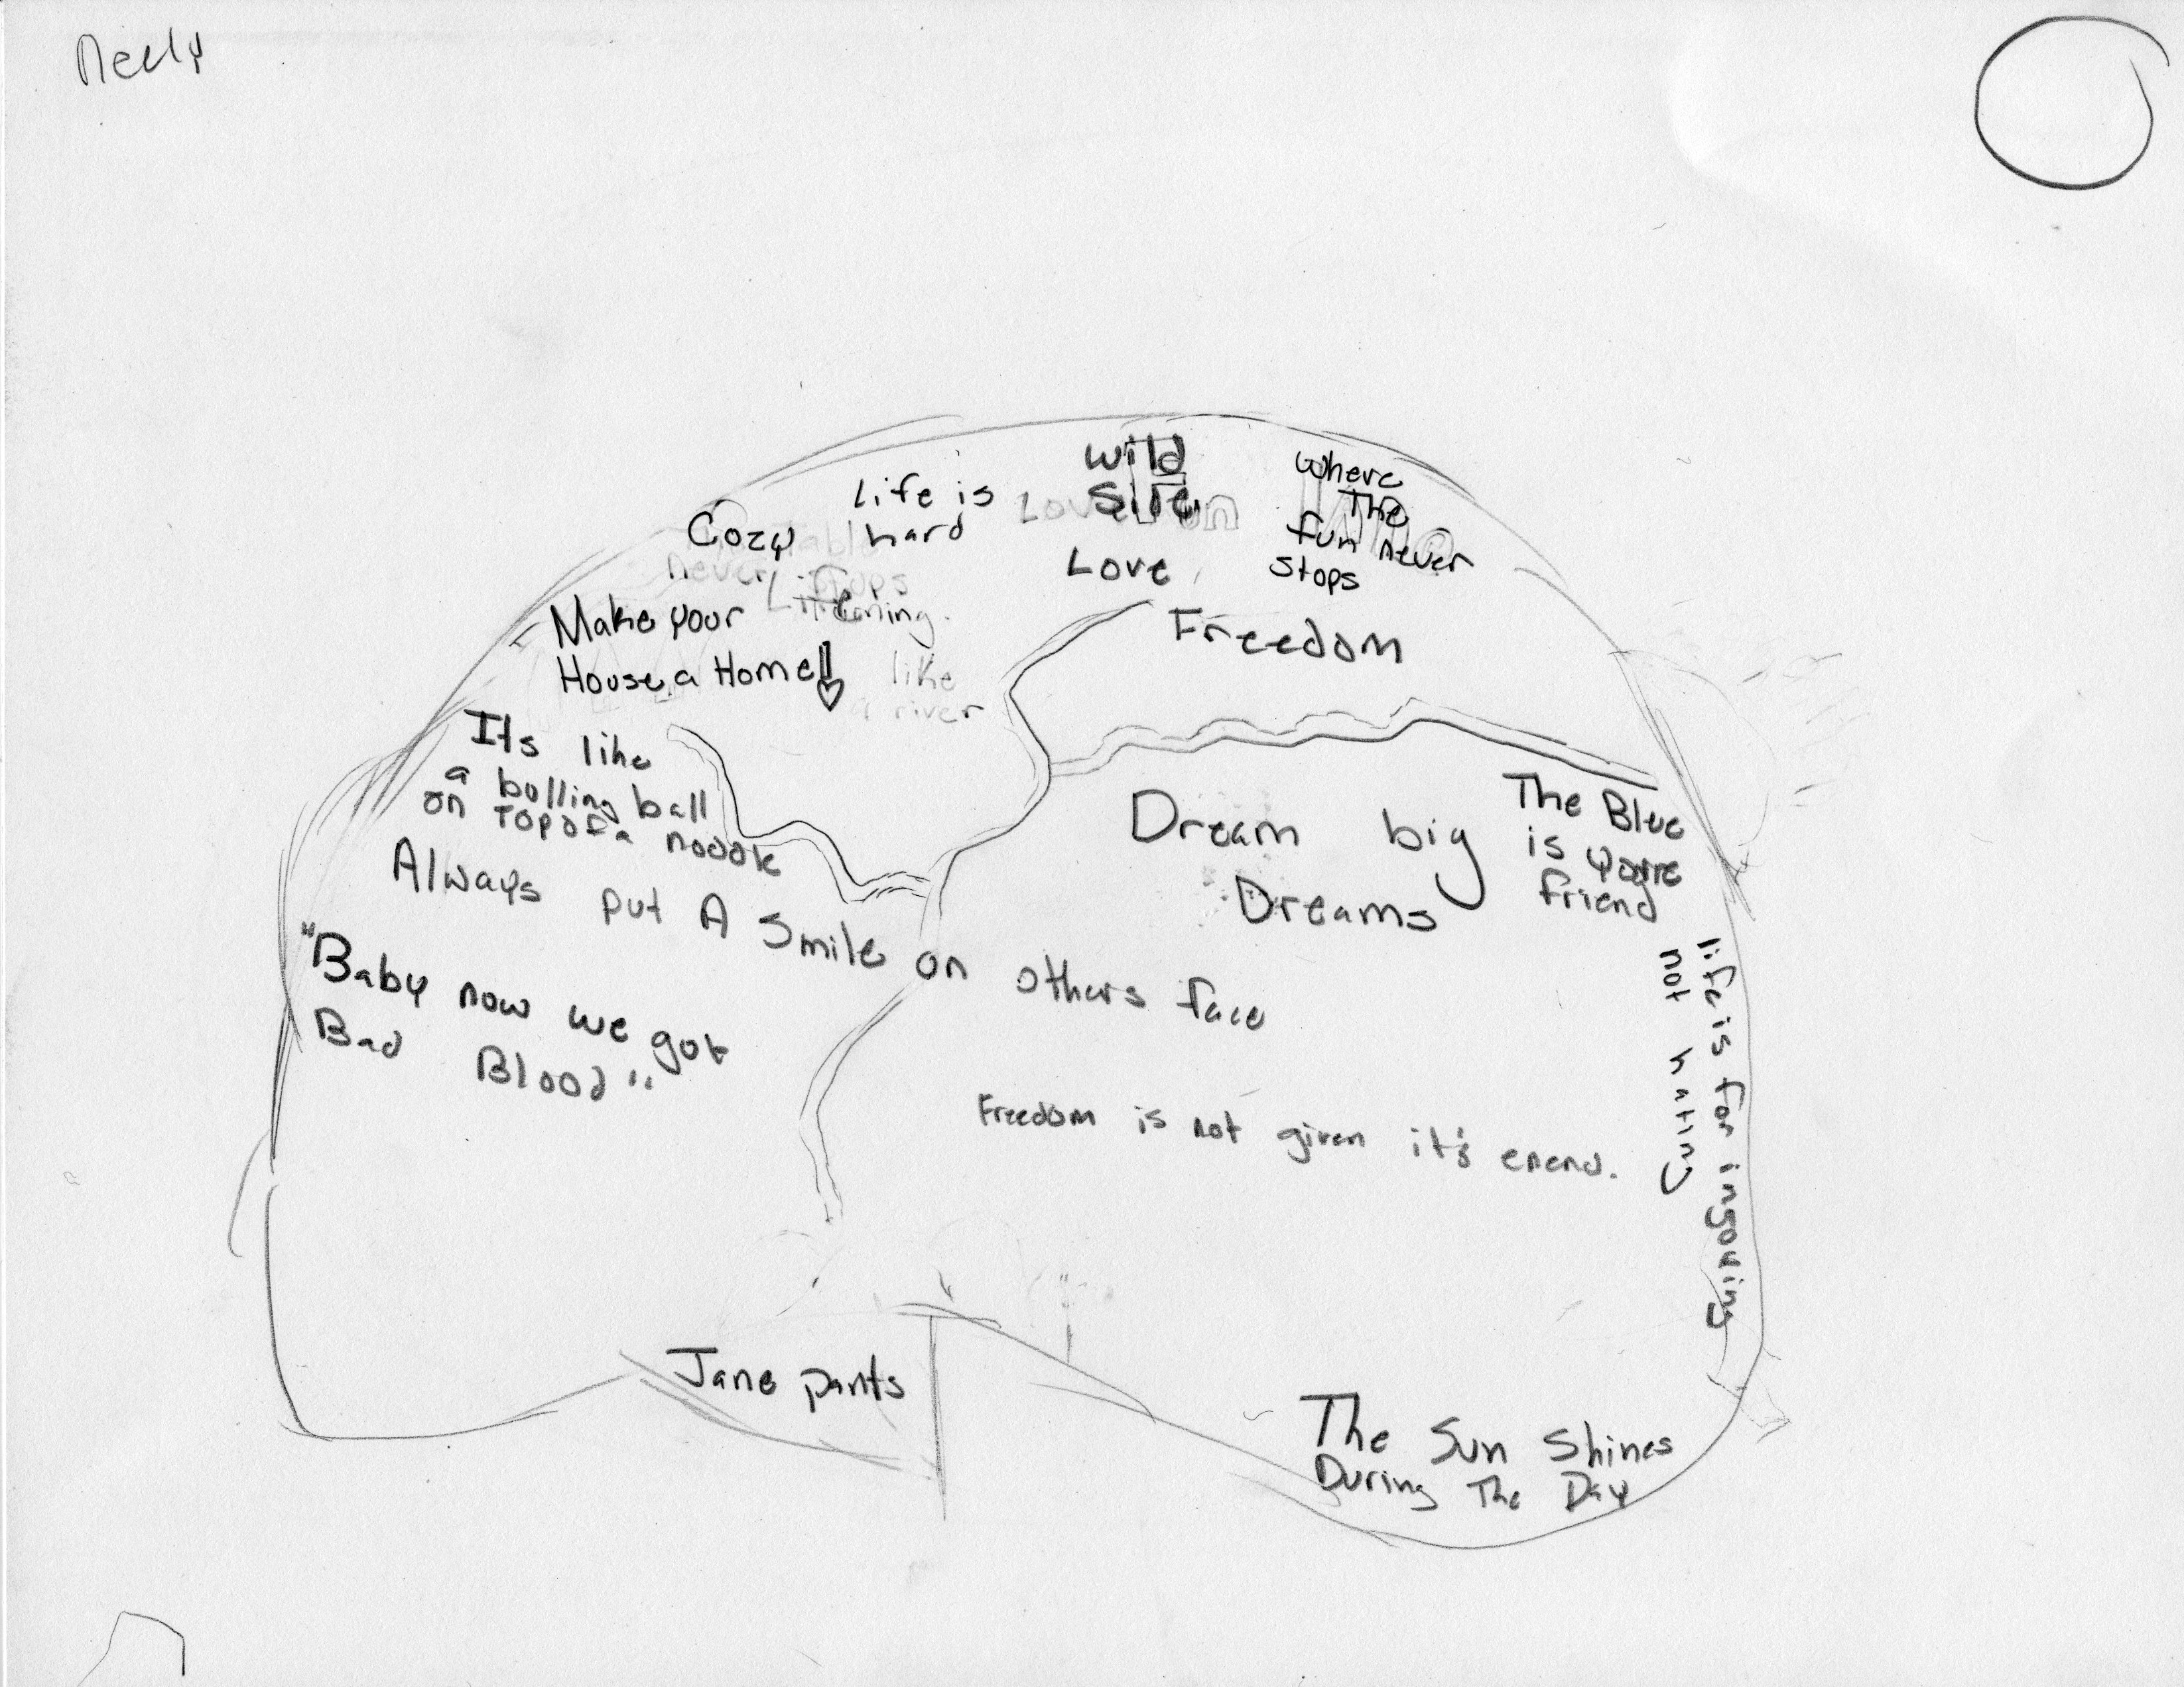 Neely
Wild
Side
Where
The
fun never
stops
Life is
hard
Cozy
Love
never stops
Life
Make your
House a Home!!
like
a river
Freedom
Its like
a bolling ball
on Top of a noodle
Dream big
Dreams
The Blue
is yorre
friend
Always put A Smile on others face
"Baby now we got
Bad Blood"
life is for ingouring
not hating
Freedom is not given it's enend.
Jane pants
The Sun Shines
During The Day